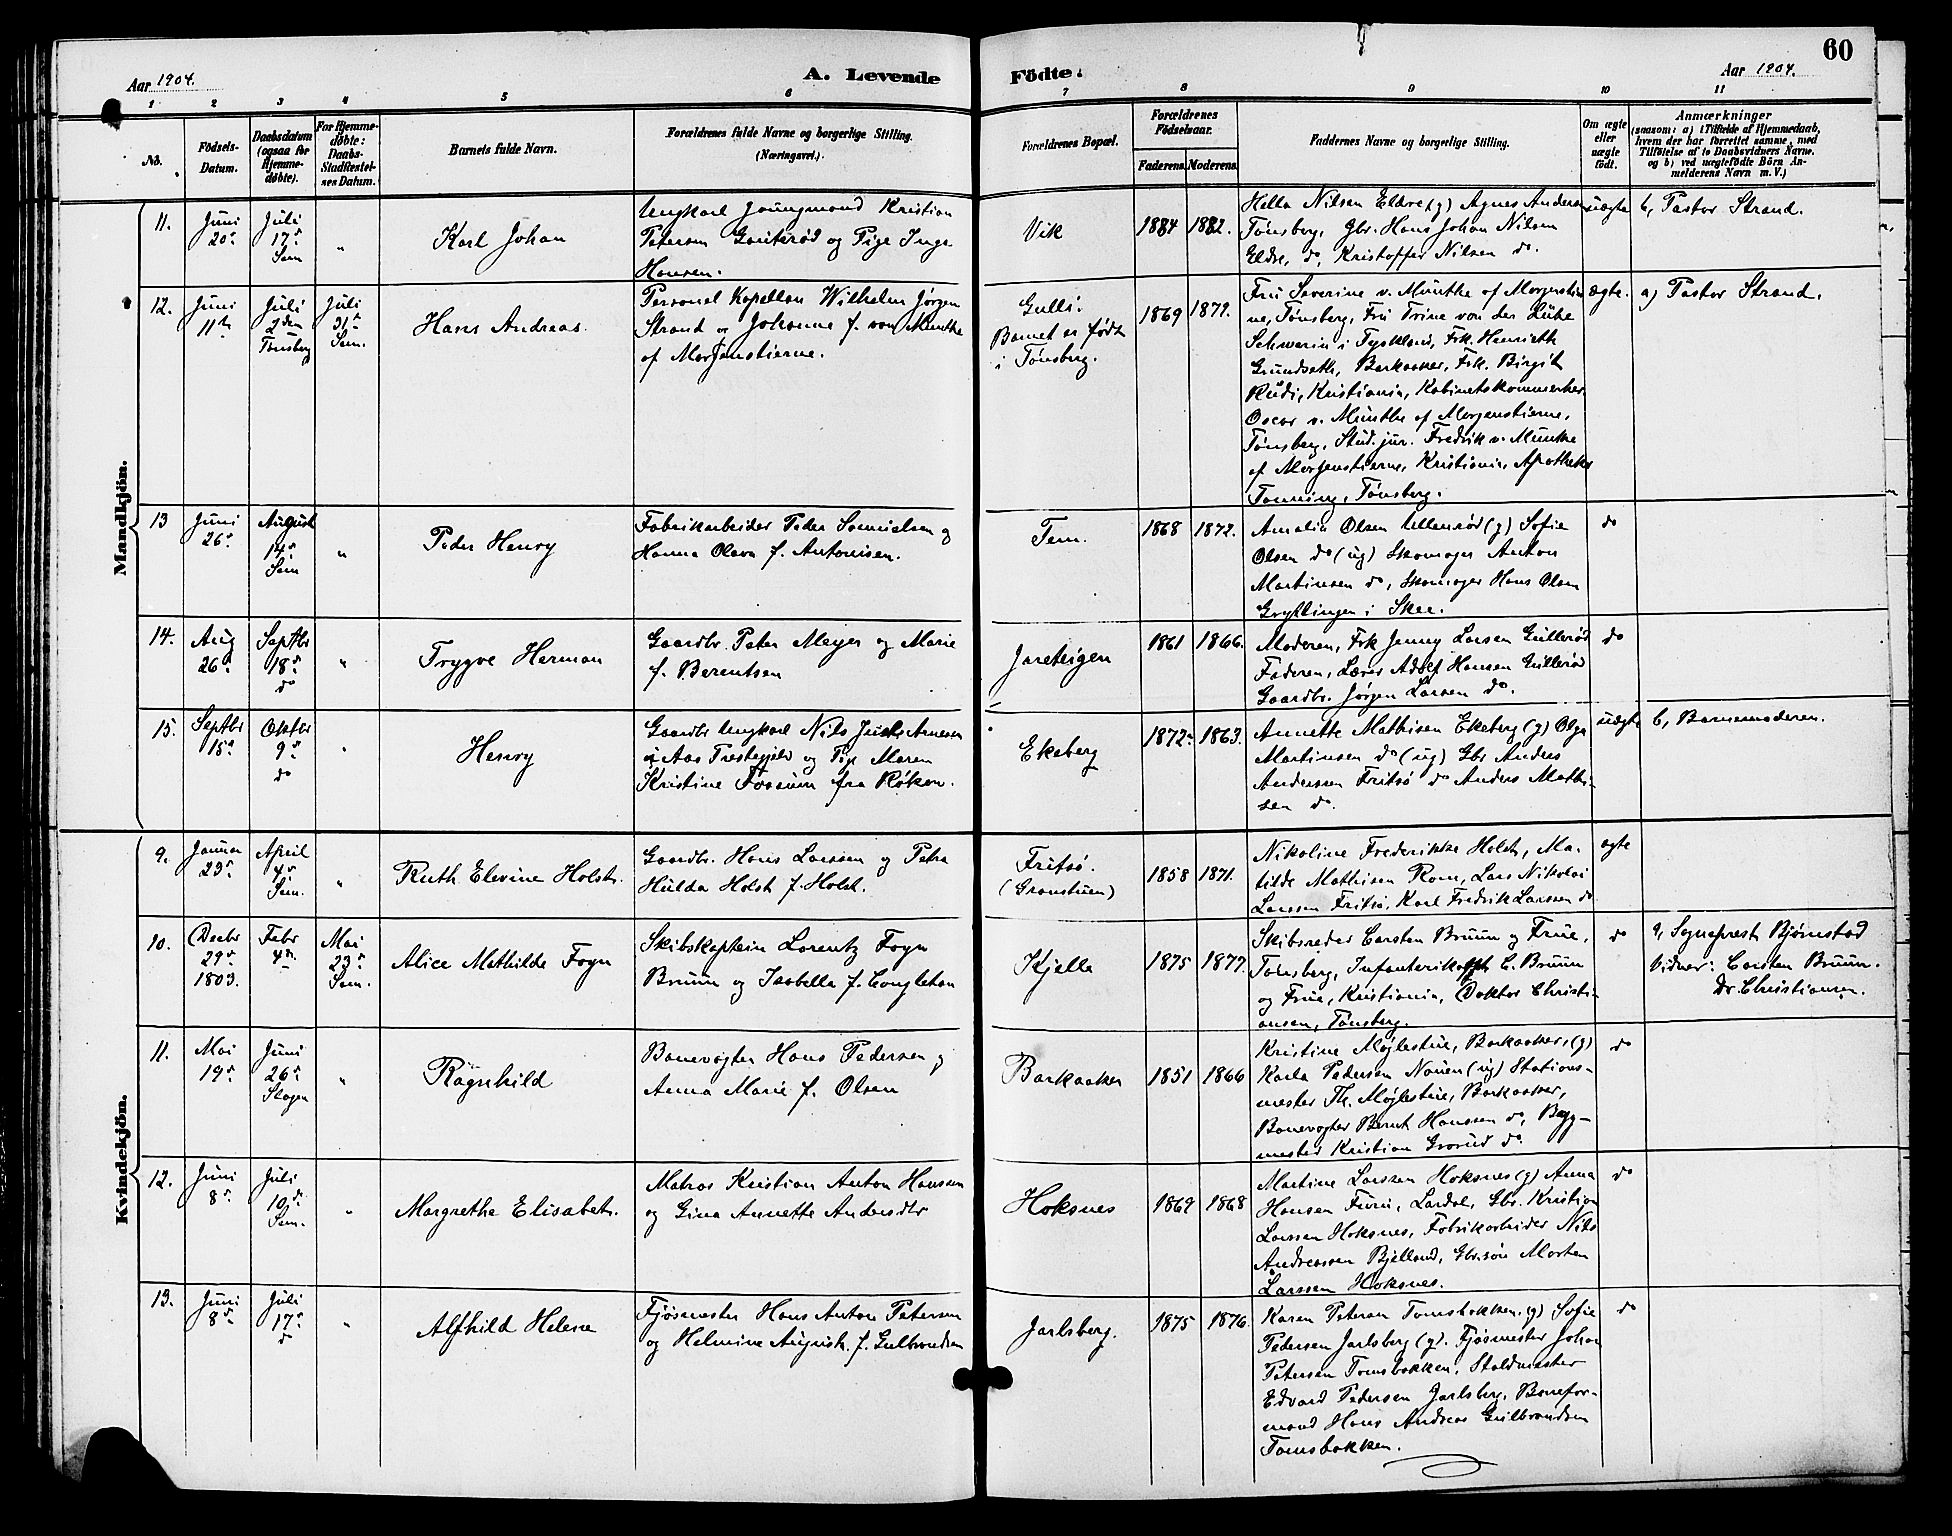 60
Aar 1904.
A. Levende
Födte.
Aar 1904.
1 2 3 4 5 6 7 8 9 10 11
No.
Födsels-
Datum.
Daabsdatum
(ogsaa for
Hjemme-
döbte).
For Hjemme-
döbte:
Daabs-
Stadfæstel-
ses Datum.
Barnets fulde Navn.
Forældrenes fulde Navne og borgerlige Stilling.
(Næringsvei.)
Forældrenes Bopæl.
Forældrenes
Födselsaar.
Faderens. Moderens.
Faddernes Navne og borgerlige Stilling.
Om ægte
eller
uægte
födt.
Anmærkninger
(saasom: a) i Tilfælde af Hjemmedaab,
hvem der har forrettet samme, med
Tilföielse af to Daabsvidners Navne.
og b) ved uægtefödte Börn An-
melderens Navn m. V.)
Mandkjön.
11.
Juni
20
Juli
17
Sem
"
Karl Johan
Ungkarl
Kristian
Petersen og Pige Inga
Hansen.
Vik
1884 1882.
Hella Nilsen Eldre (g) Agnes Andersen
Tønsberg, Gbr. Hans Johan Nilsen
Eldre, do, Kristoffer Nilsen do.
uægte
b, Pastor Strand.
12.
Juni
11
Juli
2den
Tønsberg
Juli
31
Sem.
Hans Andreas.
Personel Kapellan Wilhelm Jørgen
Strand og Johanne f. von Munthe
af Morgenstierne.
Gulli.
Barnet er født
i Tønsberg.
1869
Fru Severine v. Munthe af Morgenstier
ne, Tønsberg, Fru Trine von der Lühe
Schwerin i Tyskland, Frk. Henriette
Barkaaker, Frk. Birgit
Rudi, Kristiania, Kabinetskammerher
Oscar v. Munthe af Morgenstierne,
Tønsberg, Stud. jur. Fredrik v. Munthe
af Morgenstierne, Kristiania, Apotheker
Tønsberg.
ægte.
a) Pastor Strand.
13
Juni
26
August
14
Sem
"
Peder Henry
Fabrikarbeider Peder Samuelsen og
Hanna Olava f. Antonisen.
Tem.
1868 1872.
Amalia Olsen Ullenrød (g) Sofie
Olsen do (ug) Skomager Anton
Martinsen do, Skomager Hans Olsen
Gryttingen i Skee.
do
14.
Aug
26
Septbr
18
do
"
Trygve Herman
Gaardbr. Peter Meyer og Marie
f. Berentsen
Jareteigen
1861 1866.
Moderen, Frk Jenny Larsen Gullerød
Faderen, Lærer Adolf Hansen Gullerød
Gaardbr. Jørgen Larsen do.
do
15.
Septbr
15
Oktbr
9
do
"
Henry
Gaardbr Ungkarl Nils
i Aas Prestegjeld og Pige Maren
Kristine Fossum fra Røken.
Ekeberg
1872 1863.
Annette Mathisen Ekeberg (g) Olga
Martinsen do (ug) Gbr Anders
Anderssen Fritsø do Anders Mathi-
sen do.
uægte
b, Barnemoderen.
Kvindekjön.
9.
Januar
23
April
4
Sem.
"
Ruth Elevine Holst.
Gaardbr. Hans Larssen og Petra
Hulda Holst f. Holst.
Fritsø.
(Granstuen)
1858 1871.
Nikoline Frederikke Holst, Ma-
tilde Mathisen Rom, Lars Nikolai
Larssen Fritsø, Karl Fredrik Larssen do
ægte
10.
Decbr
29
1803.
Febr
4
Mai
23
Sem.
Alice Mathilde Foyn
Skibskaptein Lorentz Foyn
Bruun og Isabella f. Congleton
Kjelle
1875 1877.
Skibsreder Carsten Bruun og Frue,
Tønsberg, Infanterikapt. C. Bruun
og Frue, Kristiania, Doktor Christi-
ansen, Tønsberg.
do
a, Sogneprest Bjørnstad
Vidner: Carsten Bruun.
Dr. Christiansen.
11.
Mai
19
Juni
26
Skogen
"
Ragnhild
Banevogter Hans Pedersen og
Anna Marie f. Olsen
Barkaaker
1851 1866
Kristine Møjlestue, Barkaaker, (g)
Karla Pedersen Nauen (ug) Stations-
mester Th. Møjlestue, Barkaaker,
Banevogter Bernt Hansen do, Byg-
mester Kristian Grorud do
do
12.
Juni
8
Juli
10
Sem.
"
Margrethe Elisabet.
Matros Kristian Anton Hanssen
og Gina Annette Andersdtr
Hoksnes
1869 1868
Martine Larssen Hoksnes (g) Anna
Hansen Furu, Lardal, Gbr. Kristian
Larssen Hoksnes, Fabrikarbeider Nils
Andreassen Bjelland, Gbr.søn Morten
Larssen Hoksnes.
do
13.
Juni
8
Juli
17
do
"
Alfhild Helene
Fjøsmester Hans Anton Petersen
og Helmine August. f. Gulbrandsen
Jarlsberg.
1875 1876.
Karen Petersen Tomsbakken (g) Sofie
Pedersen Jarlsberg (g). Fjøsmester Johan
Petersen Tomsbakken, Staldmester
Edvard Pedersen Jarlsberg, Banefor-
mand Hans Andreas Gulbrandsen
Tomsbakken.
do